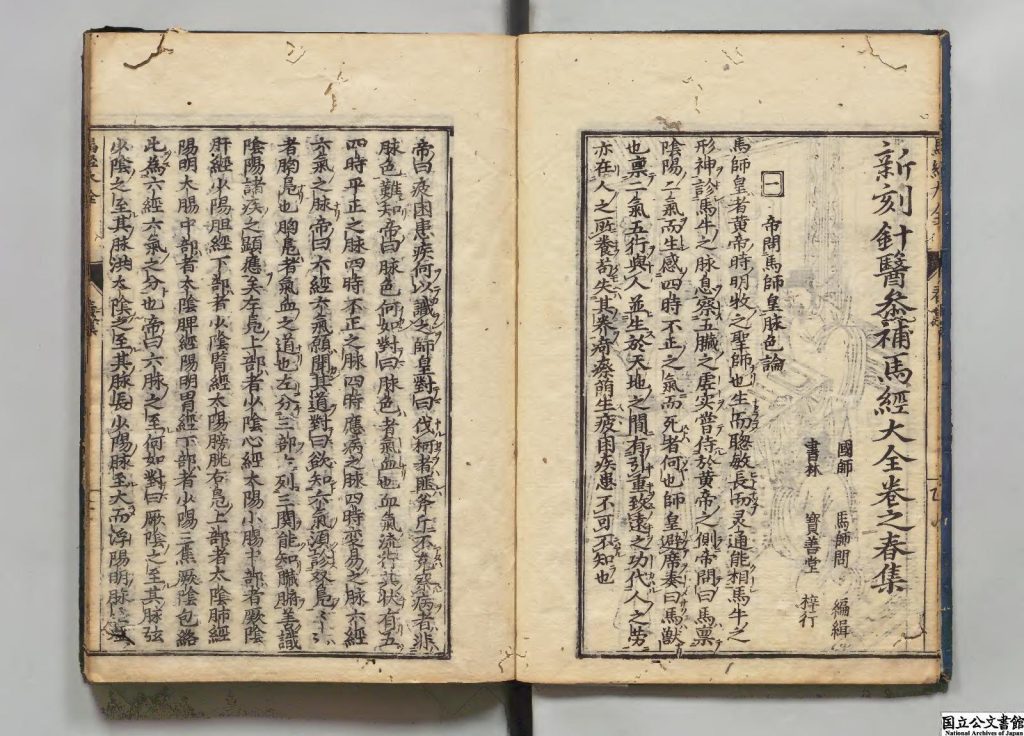 新刻針醫參補馬經大全卷之春集
國師 馬師問 編緝
書林 寶善堂 梓行
一 帝問馬師皇脉色論
馬師皇者黄帝時明牧之聖師也生而聰敏長而灵通能相馬牛之
形神診馬牛之脉息察五臓之虚实嘗侍於黄帝之側帝問曰馬禀
陰陽二氣而生感四時不正之氣而死者何也師皇避席奏曰馬獸
也禀二氣五行與人並生於天地之間有引重致遠之功代人之労
亦在人之所養苟失其養脊瘵萠生疲困疾患不可不知也
帝曰疲困患疾何以識之師皇對曰伐柯者匪斧斤不克察病者非
脉色難知帝曰脉色何如對曰脉色者氣血也血氣流行其状有五
四時平正之脉四時不正之脉四時應病之脉四時変易之脉六經
六氣之脉帝曰六經六氣願聞其道對曰欲知六氣須診双凫
者胸凫也胸凫者氣血之道也左分三部右列三関能知臓腑善識
陰陽諸疾之顕應矣左凫上部者少陰心經太陽小腸中部者厥陰
肝經少陽胆經下部者少陰腎經太陽膀胱右凫上部者太陰肺經
陽明大腸中部者太陰脾經陽明胃經下部者少陽三焦厥陰包絡
此為六經六氣之分也帝曰六脉之至何如對曰厥陰之至其脉弦
少陰之至其脉洪太陰之至其脉長少陽脉至大而浮陽明脉
国立公文書館
National Archives of Japan